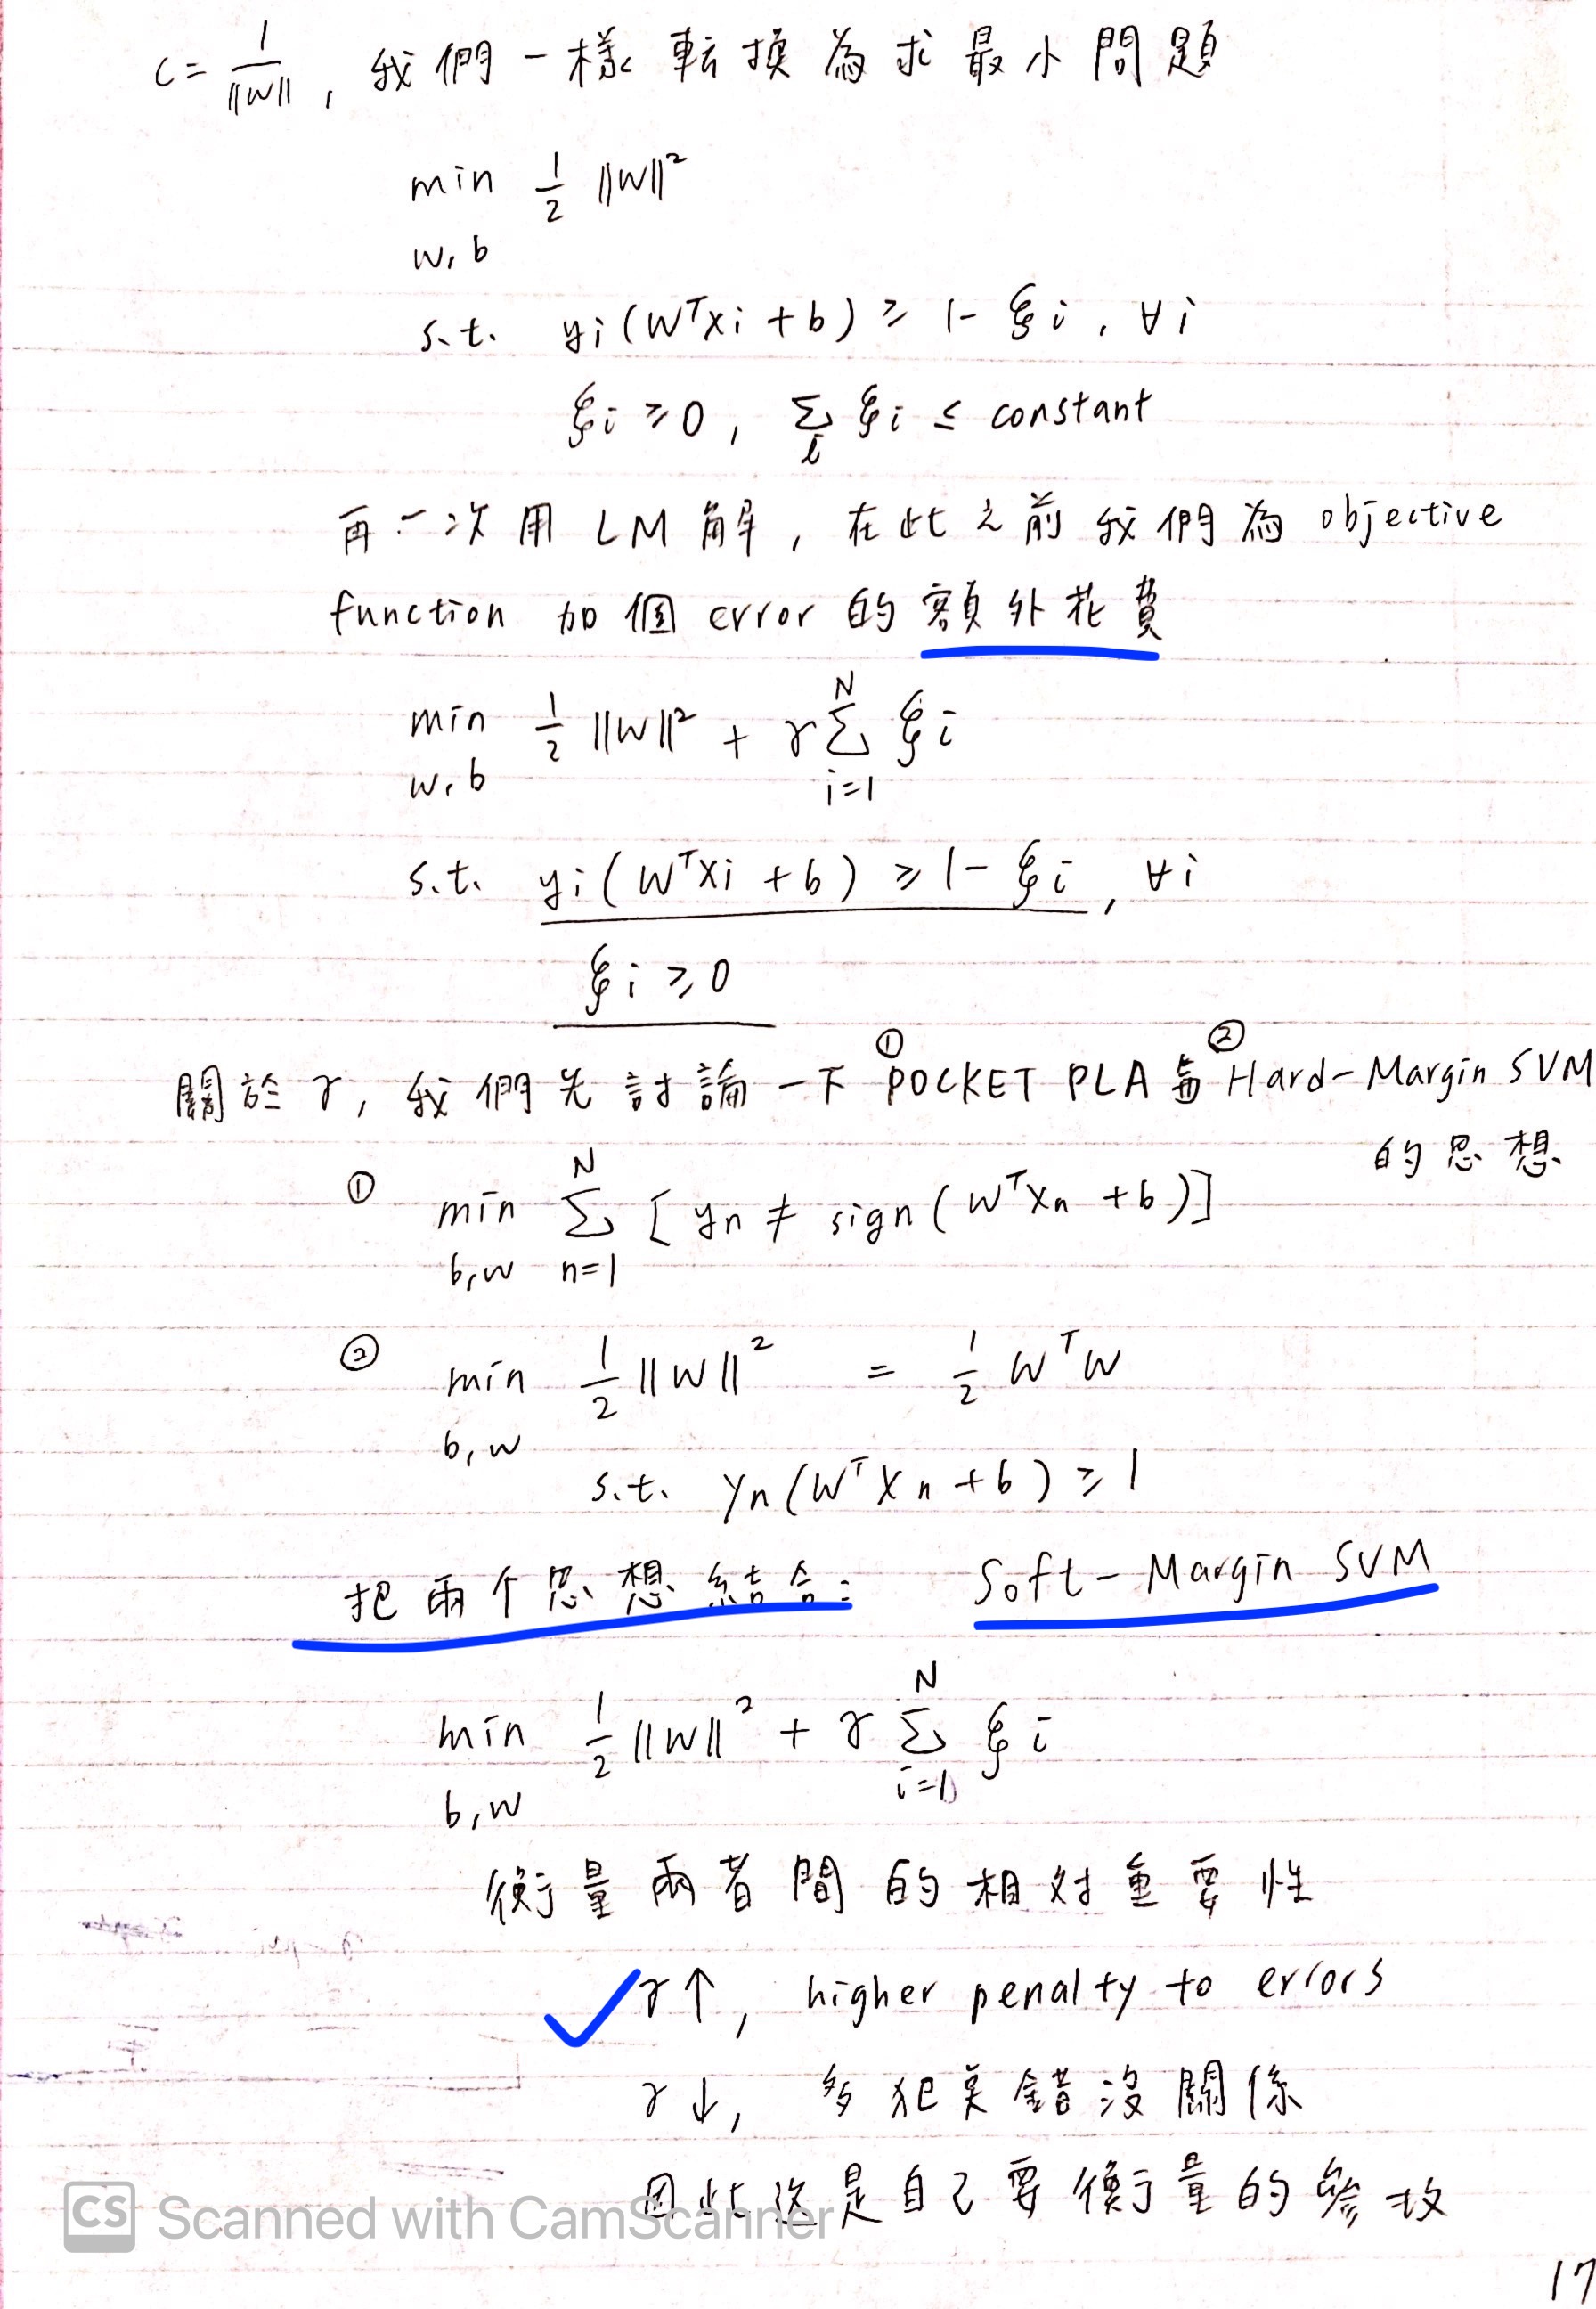 C = 1/||W|| , 我們一樣転換為求最小問題
min 1/2 ||W||²
w, b
s.t. yi(WᵀXi + b) ≥ 1 - ξi , ∀i
ξi ≥ 0 , Σi ξi ≤ constant
再一次用 LM 解 , 在此之前我們為 objective
function 加個 error 的額外花費
min 1/2 ||W||² + γ Σ_{i=1}^{N} ξi
w, b
s.t. yi(WᵀXi + b) ≥ 1 - ξi , ∀i
ξi ≥ 0
關於 γ , 我們先討論一下 ① POCKET PLA 與 ② Hard-Margin SVM
的思想
① min Σ_{n=1}^{N} [ yn ≠ sign(WᵀXn + b)]
b, w
② min 1/2 ||W||² = 1/2 WᵀW
b, w
s.t. yn(WᵀXn + b) ≥ 1
把兩个思想結合: Soft-Margin SVM
min 1/2 ||W||² + γ Σ_{i=1}^{N} ξi
b, w
衡量兩者間的相对重要性
γ↑, higher penalty to errors
γ↓, 多犯点錯沒關係
因此这是自己要衡量的參放
CS Scanned with CamScanner
17